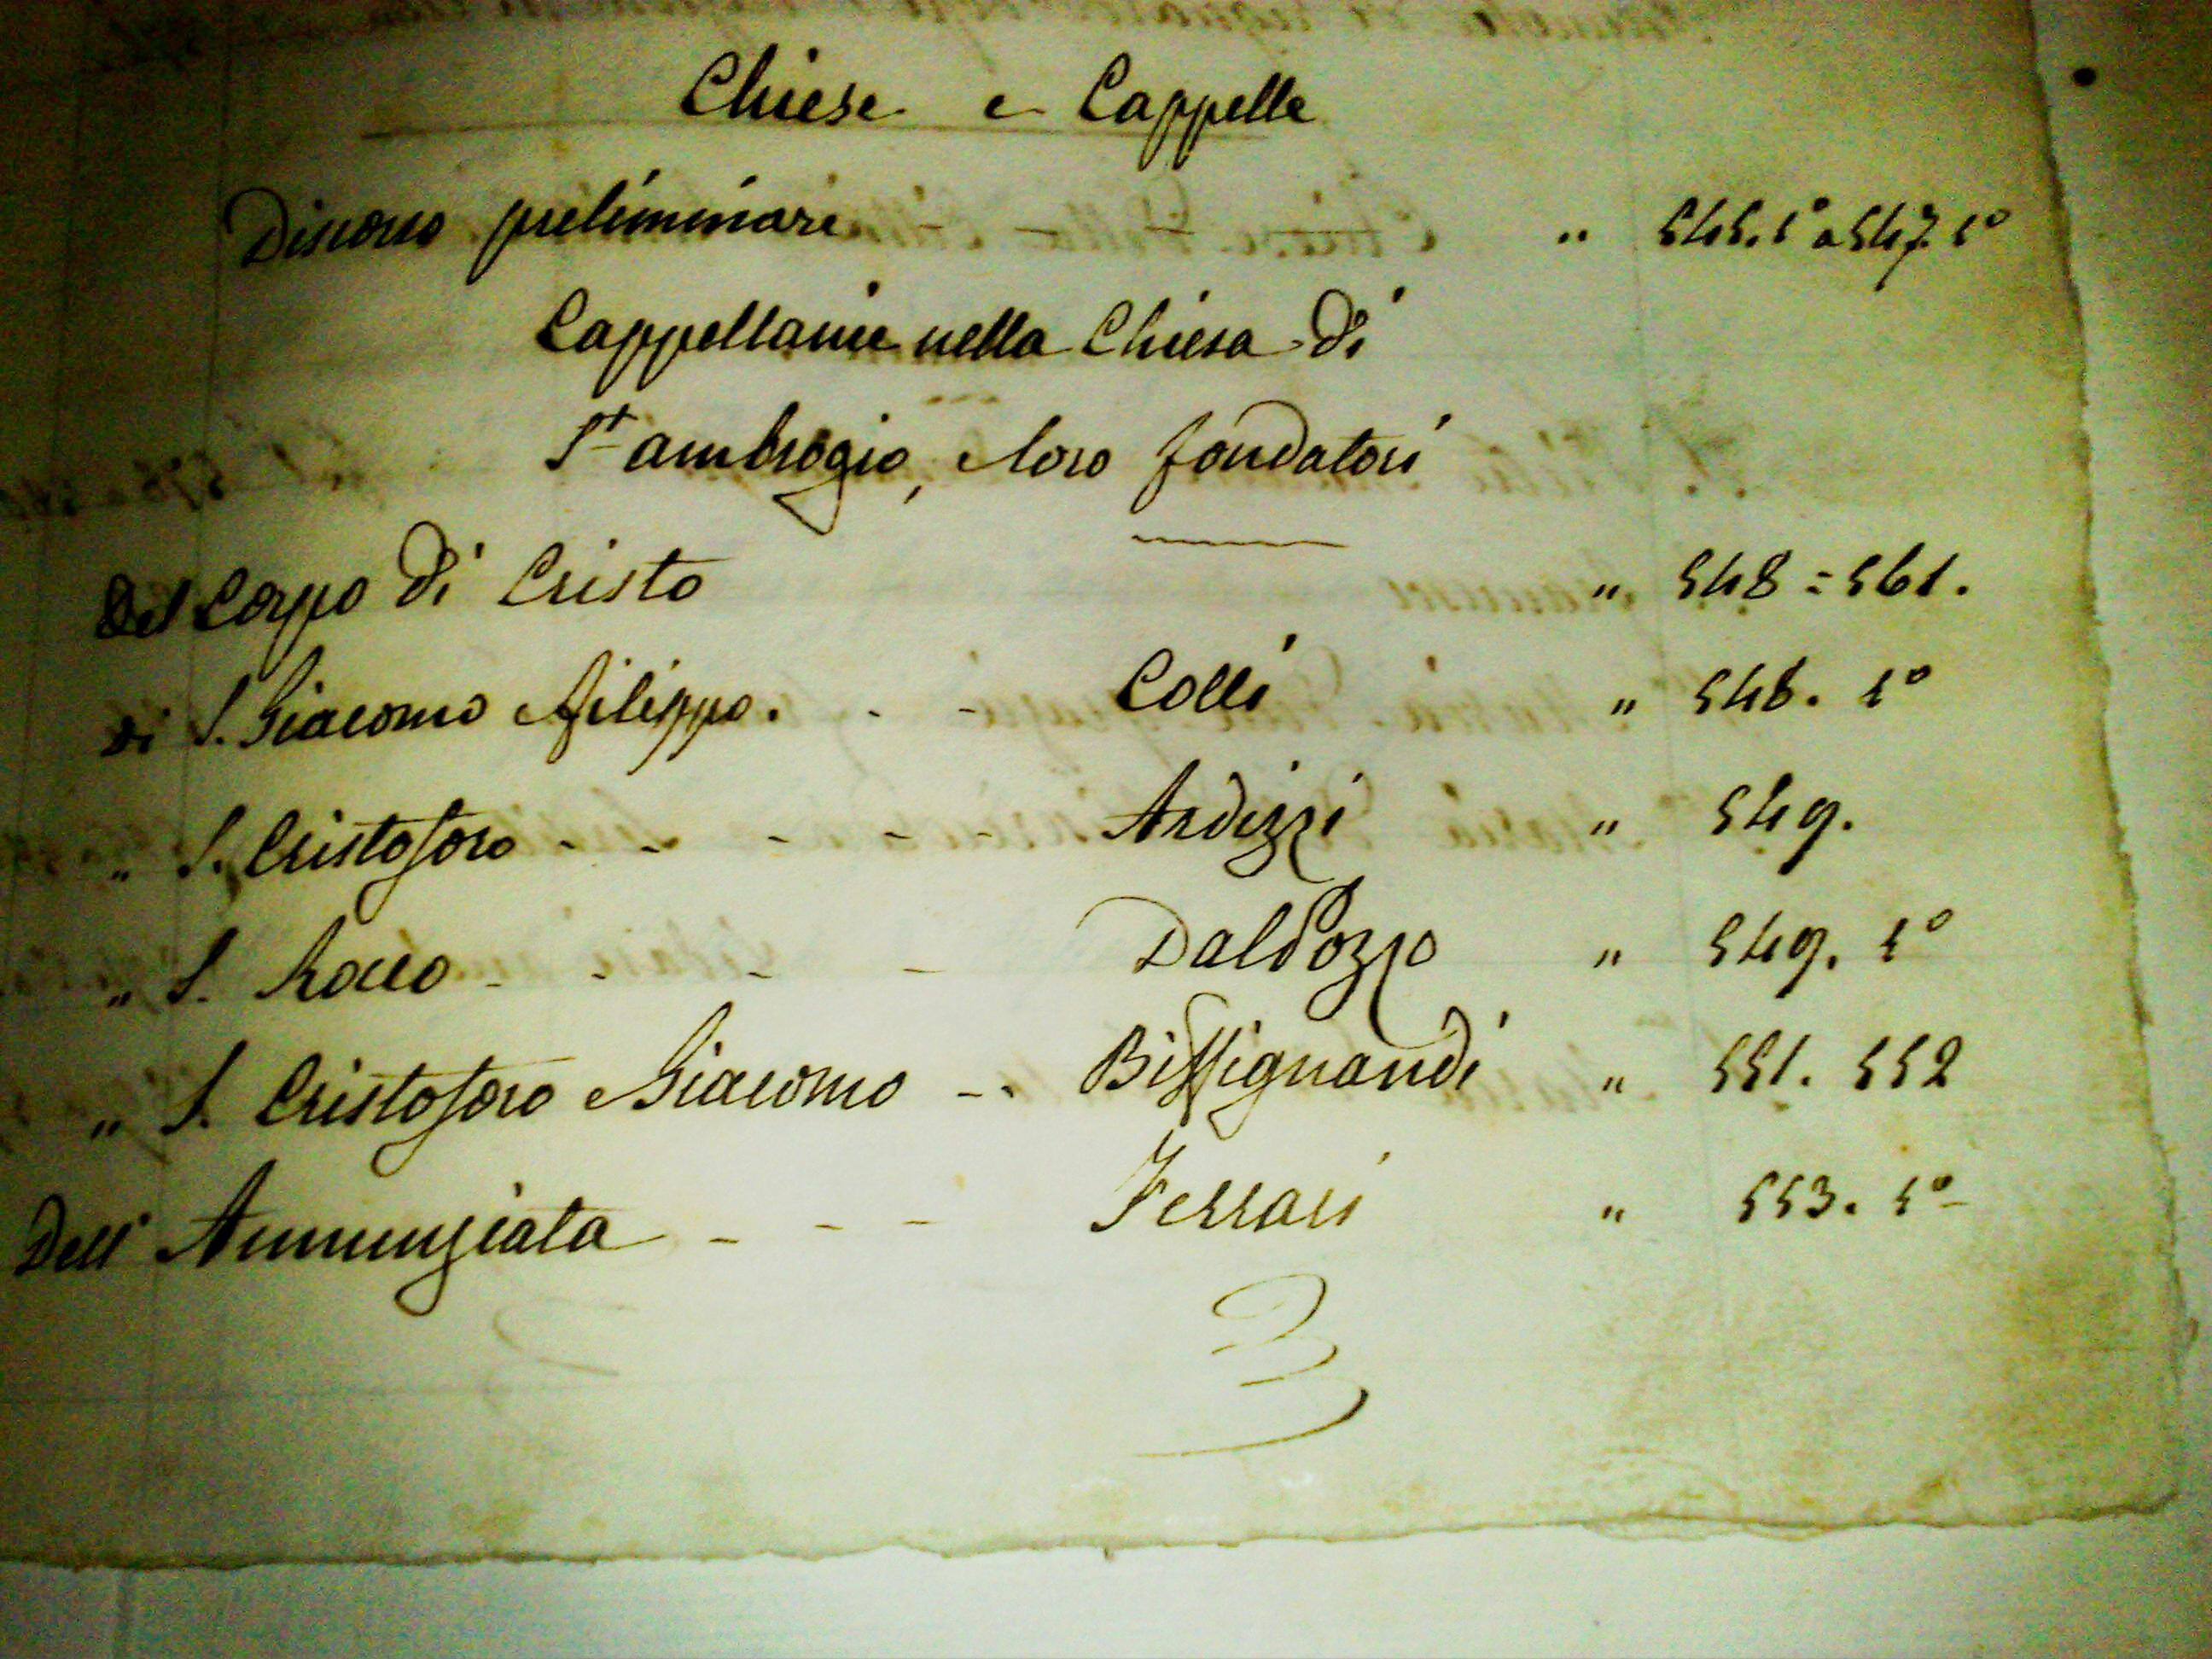 Chiese e Cappelle
Discorso preliminare " 545. 1° a 547. 1°
Cappellanie nella Chiesa di
S.t ambrogio, e loro fondatori
Del Corpo di Cristo " 548 = 561.
di S. Giacomo e filippo. - - Colli " 548. 1°
" S. Cristoforo - - - - - Ardizzi " 549.
" S. Rocco - - - - Dal Pozzo " 549. 1°
" S. Cristoforo e Giacomo - - Biffignandi " 551. 552
Dell' Annunziata - - - Ferrari " 553. 1°